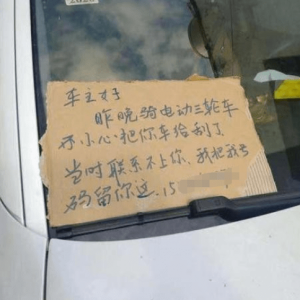 车主好
昨晚骑电动三轮车
不小心把你车给刮了
当时联系不上你,我把我号
码留你这.15